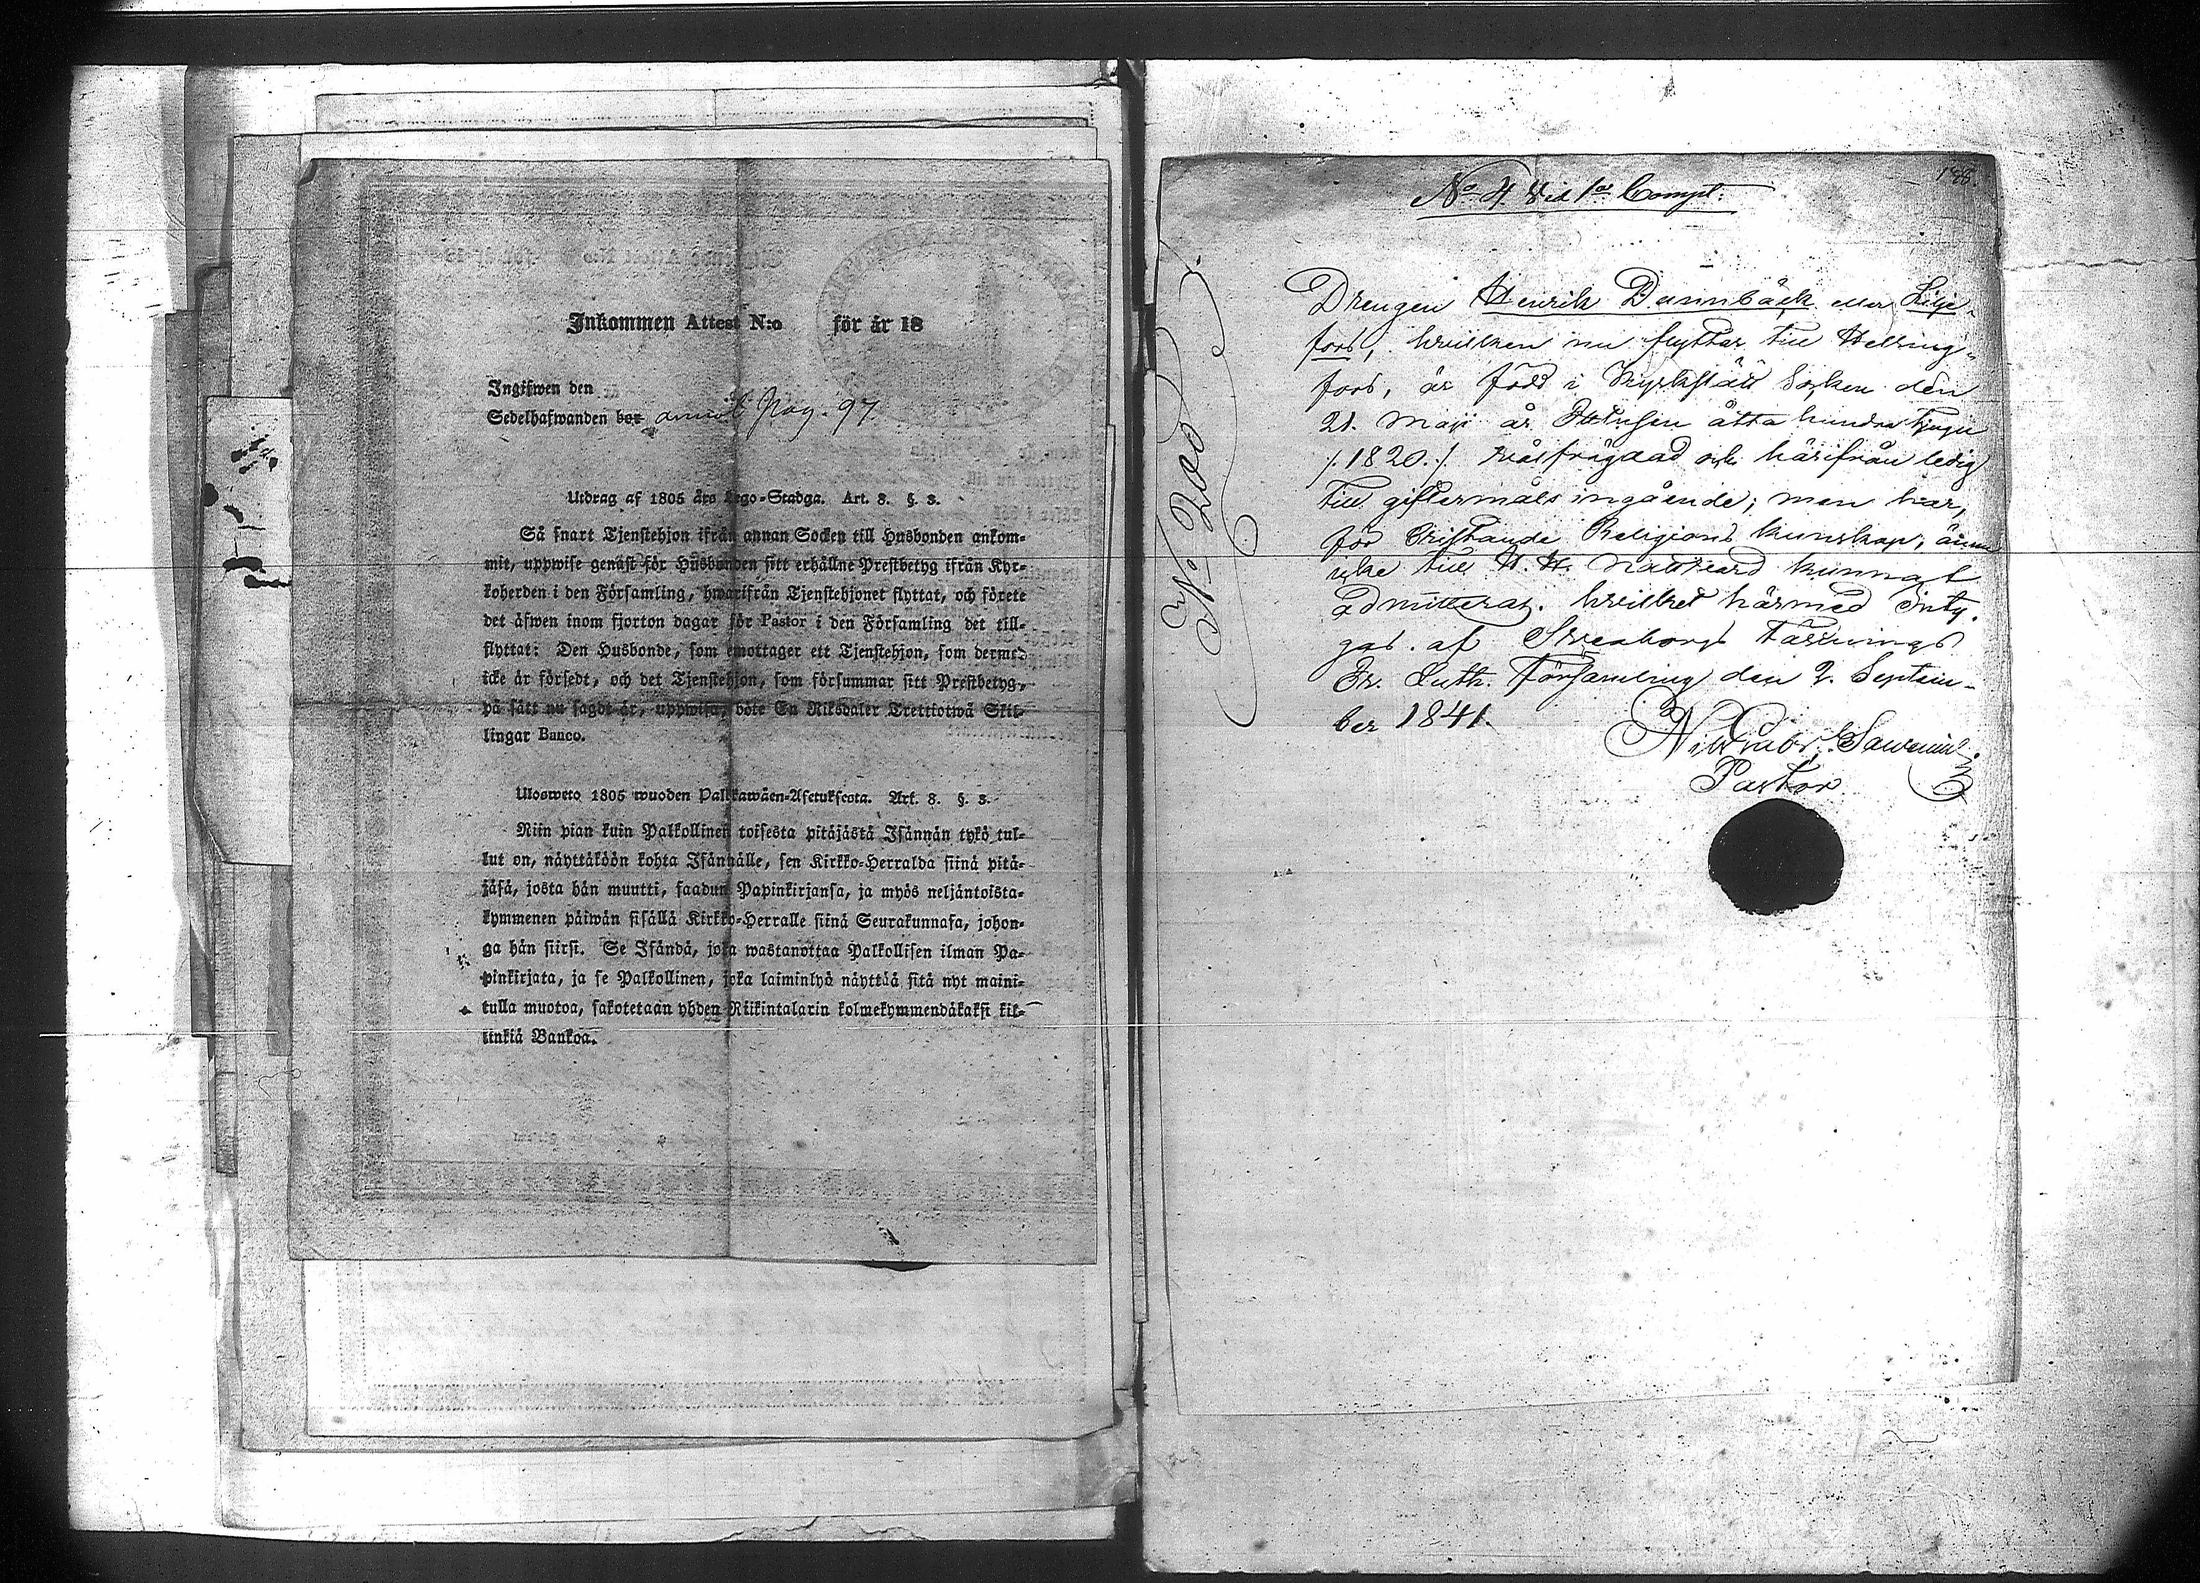 Inkommen Attest N:o för år 18
Ingifwen den
Sedelhafwanden bor annot. Pag. 97.
Utdrag af 1805 års Lego-Stadga. Art. 8. §. 3.
Så snart Tjenstehjon ifrån annan Socken till Husbonden ankom-
mit, uppwise genast för Husbonden sitt erhållne Prestbetyg ifrån Kyr-
koherden i den Församling, hwarifrån Tjenstehjonet flyttat, och förete
det äfwen inom fjorton dagar för Pastor i den Församling det till-
flyttat: Den Husbonde, som emottager ett Tjenstehjon, som dermed
icke är försedt, och det Tjenstehjon, som försummar sitt Prestbetyg,
på sätt nu sagdt är, uppwisa, böte En Riksdaler Trettiotwå Skil-
lingar Banco.
Ulosweto 1805 wuoden Palkkawäen-Asetuksesta. Art. 8. §. 3.
Niin pian kuin Palkollinen toisesta pitäjästä Isännän tykö tul-
lut on, näyttäköön kohta Isännälle, sen Kirkko-Herralda siinä pitä-
jäsä, josta hän muutti, saadun Papinkirjansa, ja myös neljäntoista-
kymmenen päiwän sisällä Kirkko-Herralle siinä Seurakunnasa, johon-
ga hän siirsi. Se Isändä, joka wastanottaa Palkollisen ilman Pa-
pinkirjata, ja se Palkollinen, joka laiminlyö näyttää sitä nyt maini-
tulla muotoa, sakotetaan yhden Riikintalarin kolmekymmendäkaksi kil-
linkiä Bankoa.
188
No 4 Vid 1a Comp:
No 200
Drengen Henrik Dannbäck eller Lilje-
fors, hvilken nu flyttar till Helsing-
fors, är född i Kyrkslätt Socken den
21. Maji år Adertonhundra tjugu
/.1820./. Wälfrägdad och härifrån ledig
till giftermåls ingående; men har,
för bristande Religions kunskap, ännu
icke till H. H. Nattvard kunnat
admitteras. hvilket härmed Inty-
gas. af Sveaborgs Fästnings
Ev. Luth. Församling den 2. Septem-
ber 1841.
Pastor